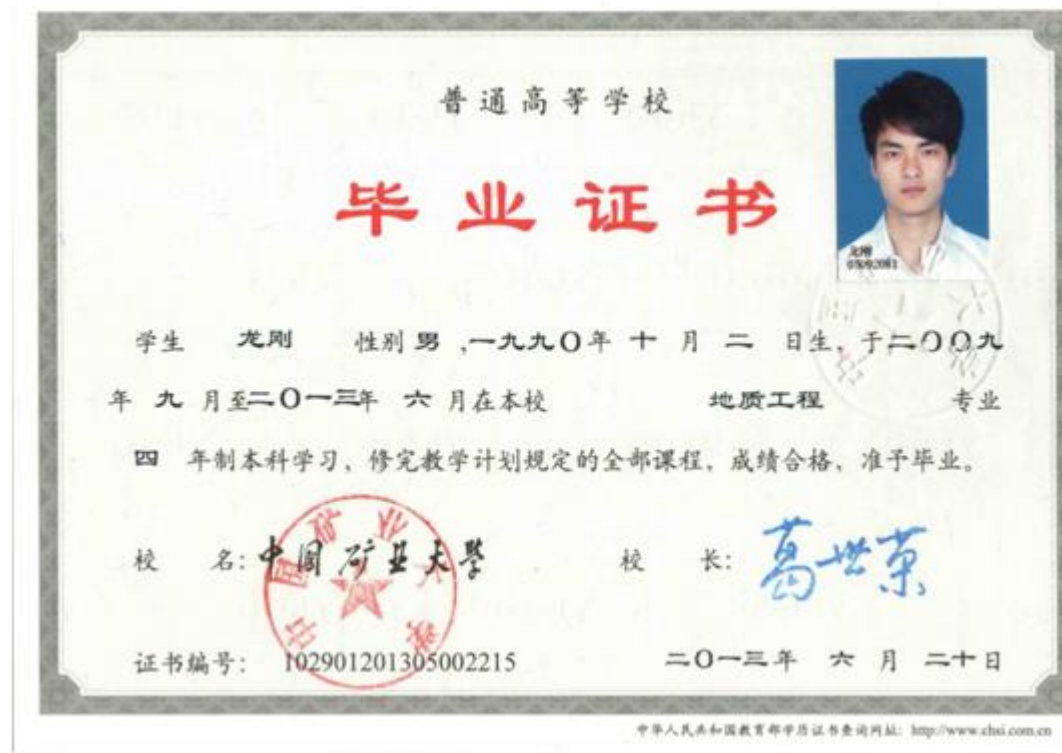 普通高等学校
毕业证书
龙刚
05092081
学生 龙刚 性别 男 ,一九九〇年 十 月 二 日生, 于二〇〇九
年 九 月至二〇一三年 六 月在本校 地质工程 专业
四 年制本科学习, 修完教学计划规定的全部课程, 成绩合格, 准予毕业。
校 名: 中国矿业大学 校 长: 葛世荣
中国矿业大学
证书编号: 102901201305002215 二〇一三年 六 月 二十日
中华人民共和国教育部学历证书查询网址: http://www.chsi.com.cn